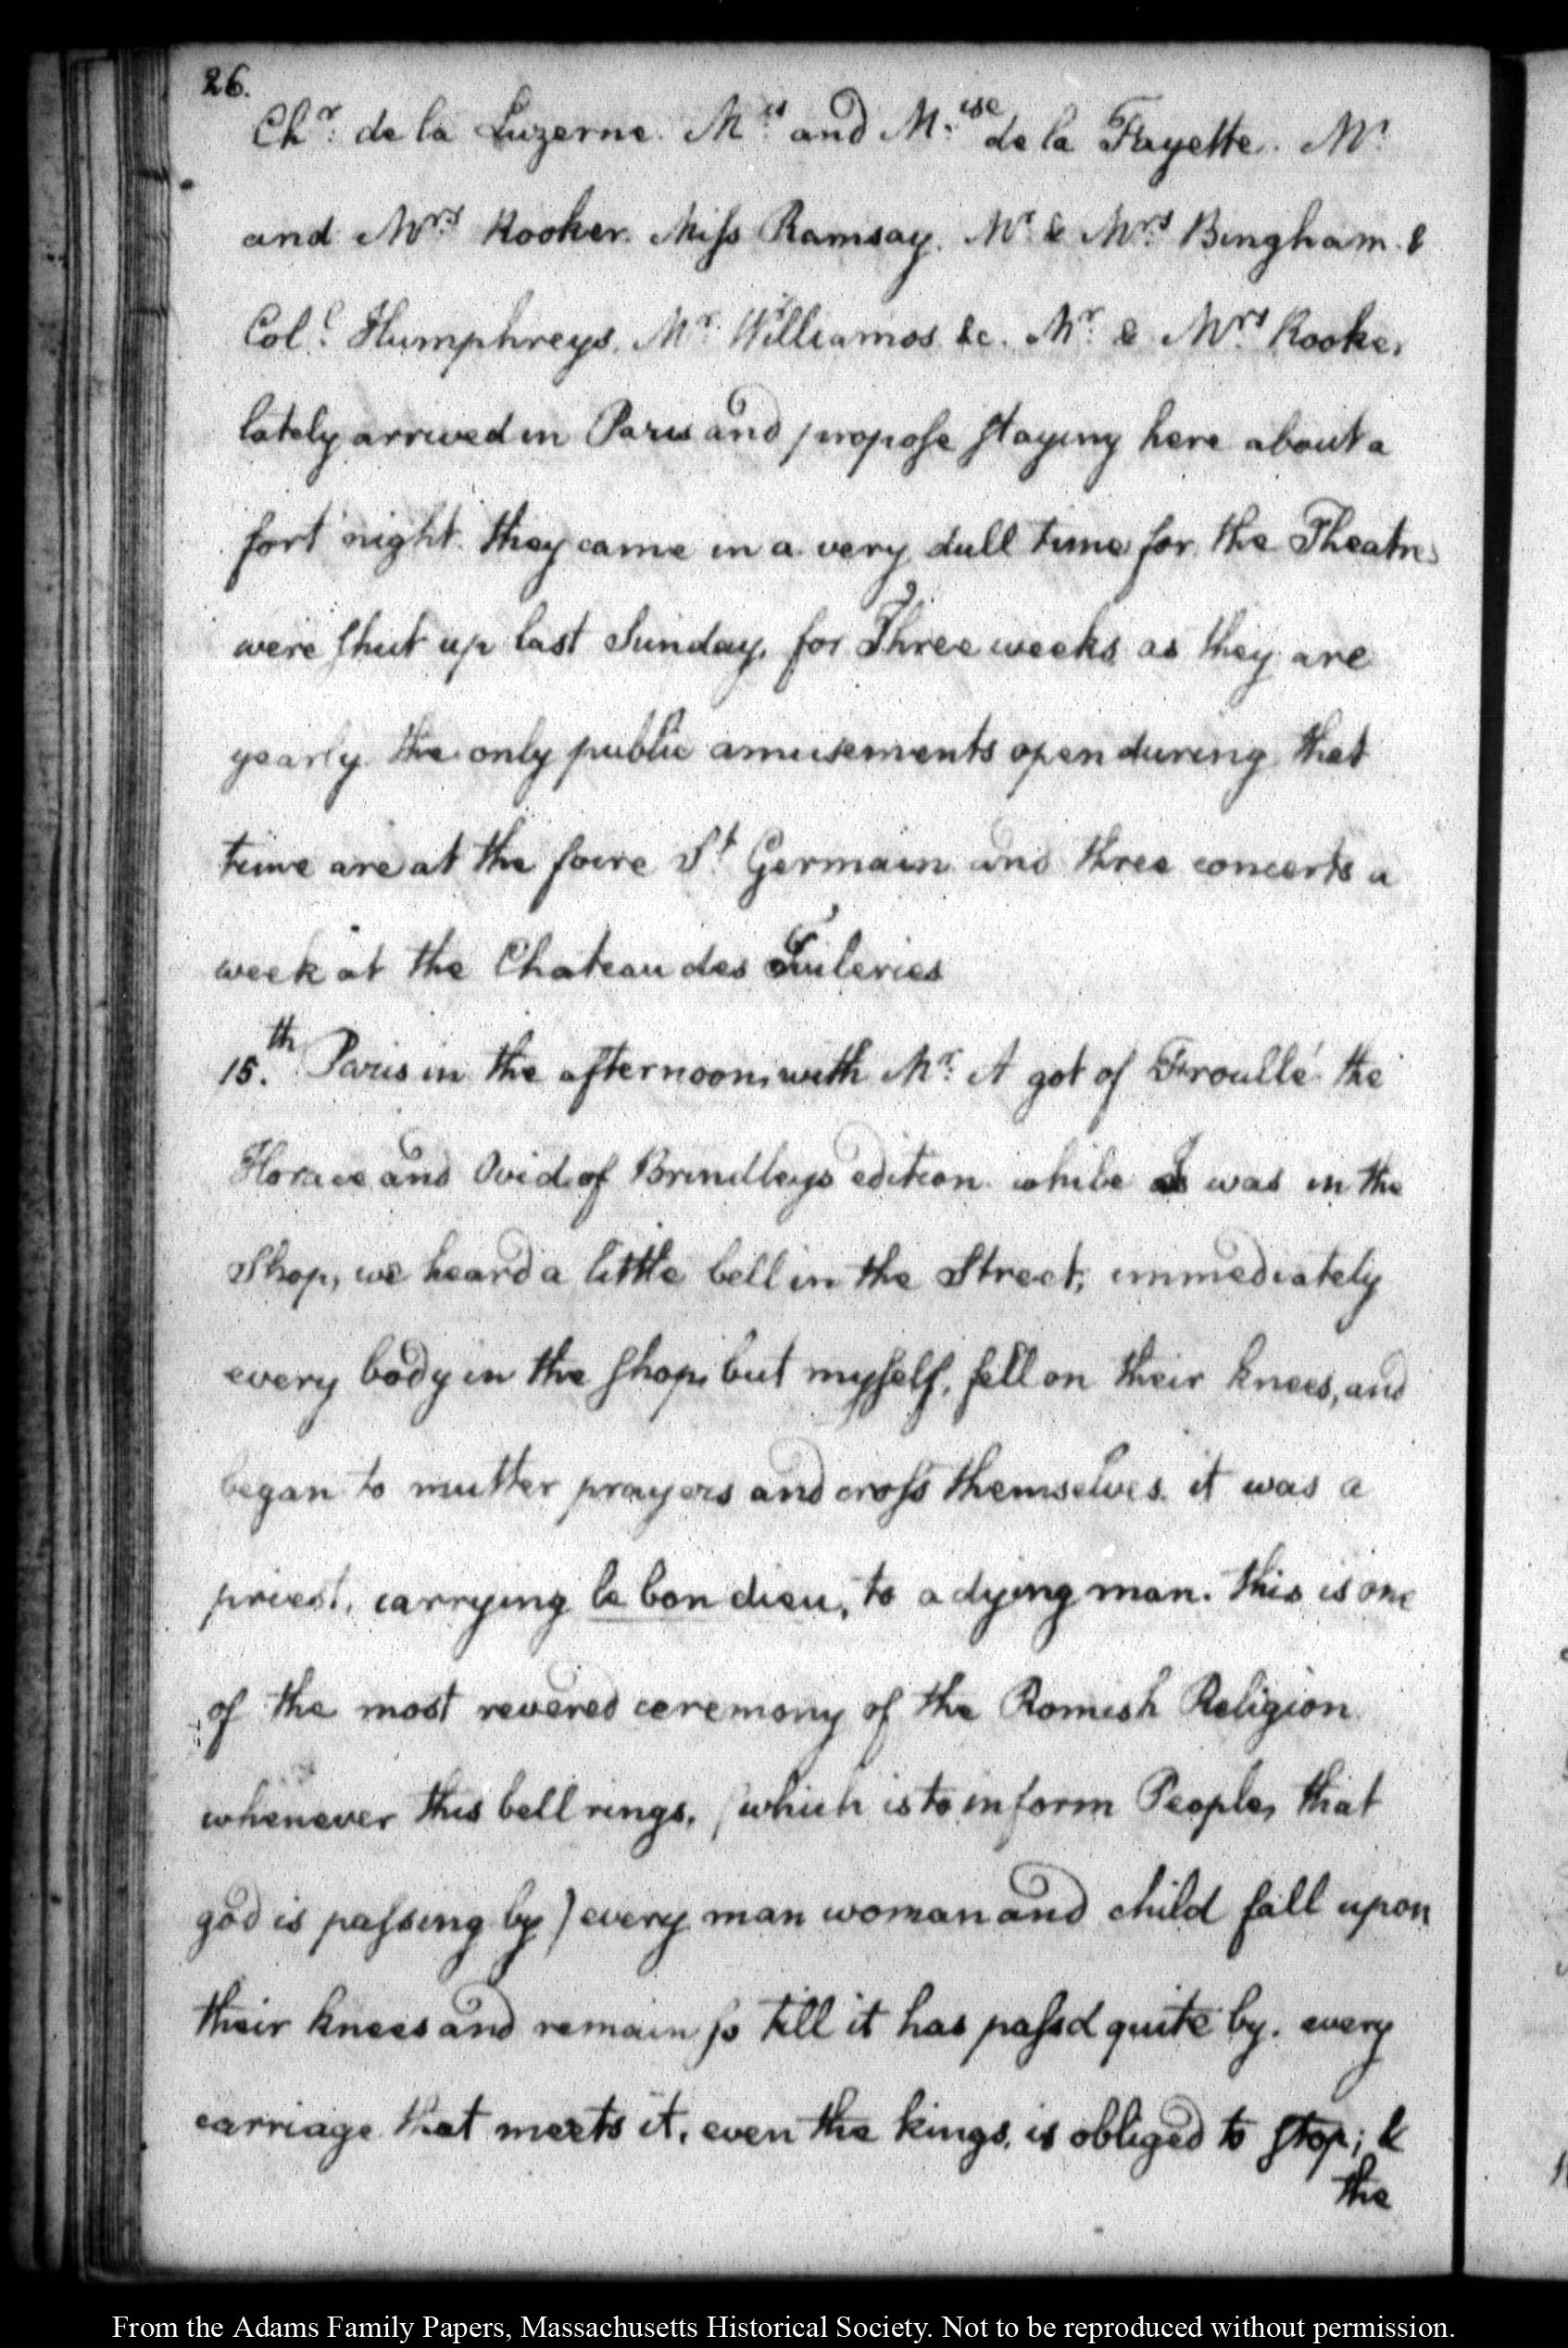 26.
Chr. de la Luzerne. Mis and M.ise de la Fayette. Mr
and Mrs Rooker. Miss Ramsay. Mr & Mrs Bingham. &
Coll. Humphreys. Mr. Williamos &c. Mr. & Mrs Rooker
lately arrived in Paris and propose staying here about a
fort night. they came in a very dull time for the Theatres
were shut up last Sunday, for Three weeks as they are
yearly. the only public amusements open during that
time are at the foire St Germain and three concerts a
week at the Chateau des Tuileries
15.th Paris in the afternoon, with Mr. A got of Froullé the
Horace and Ovid of Brindleys edition. while I was in the
Shop, we heard a little bell in the Street; immediately
every body in the shop, but myself, fell on their knees, and
began to mutter prayers and cross themselves. it was a
priest, carrying le bon dieu, to a dying man. this is one
of the most revered ceremony of the Romish Religion
whenever this bell rings, (which is to inform People, that
god is passing by) every man woman and child fall upon
their knees and remain so till it has passd quite by. every
carriage that meets it, even the kings, is obliged to stop; &
the
From the Adams Family Papers, Massachusetts Historical Society. Not to be reproduced without permission.